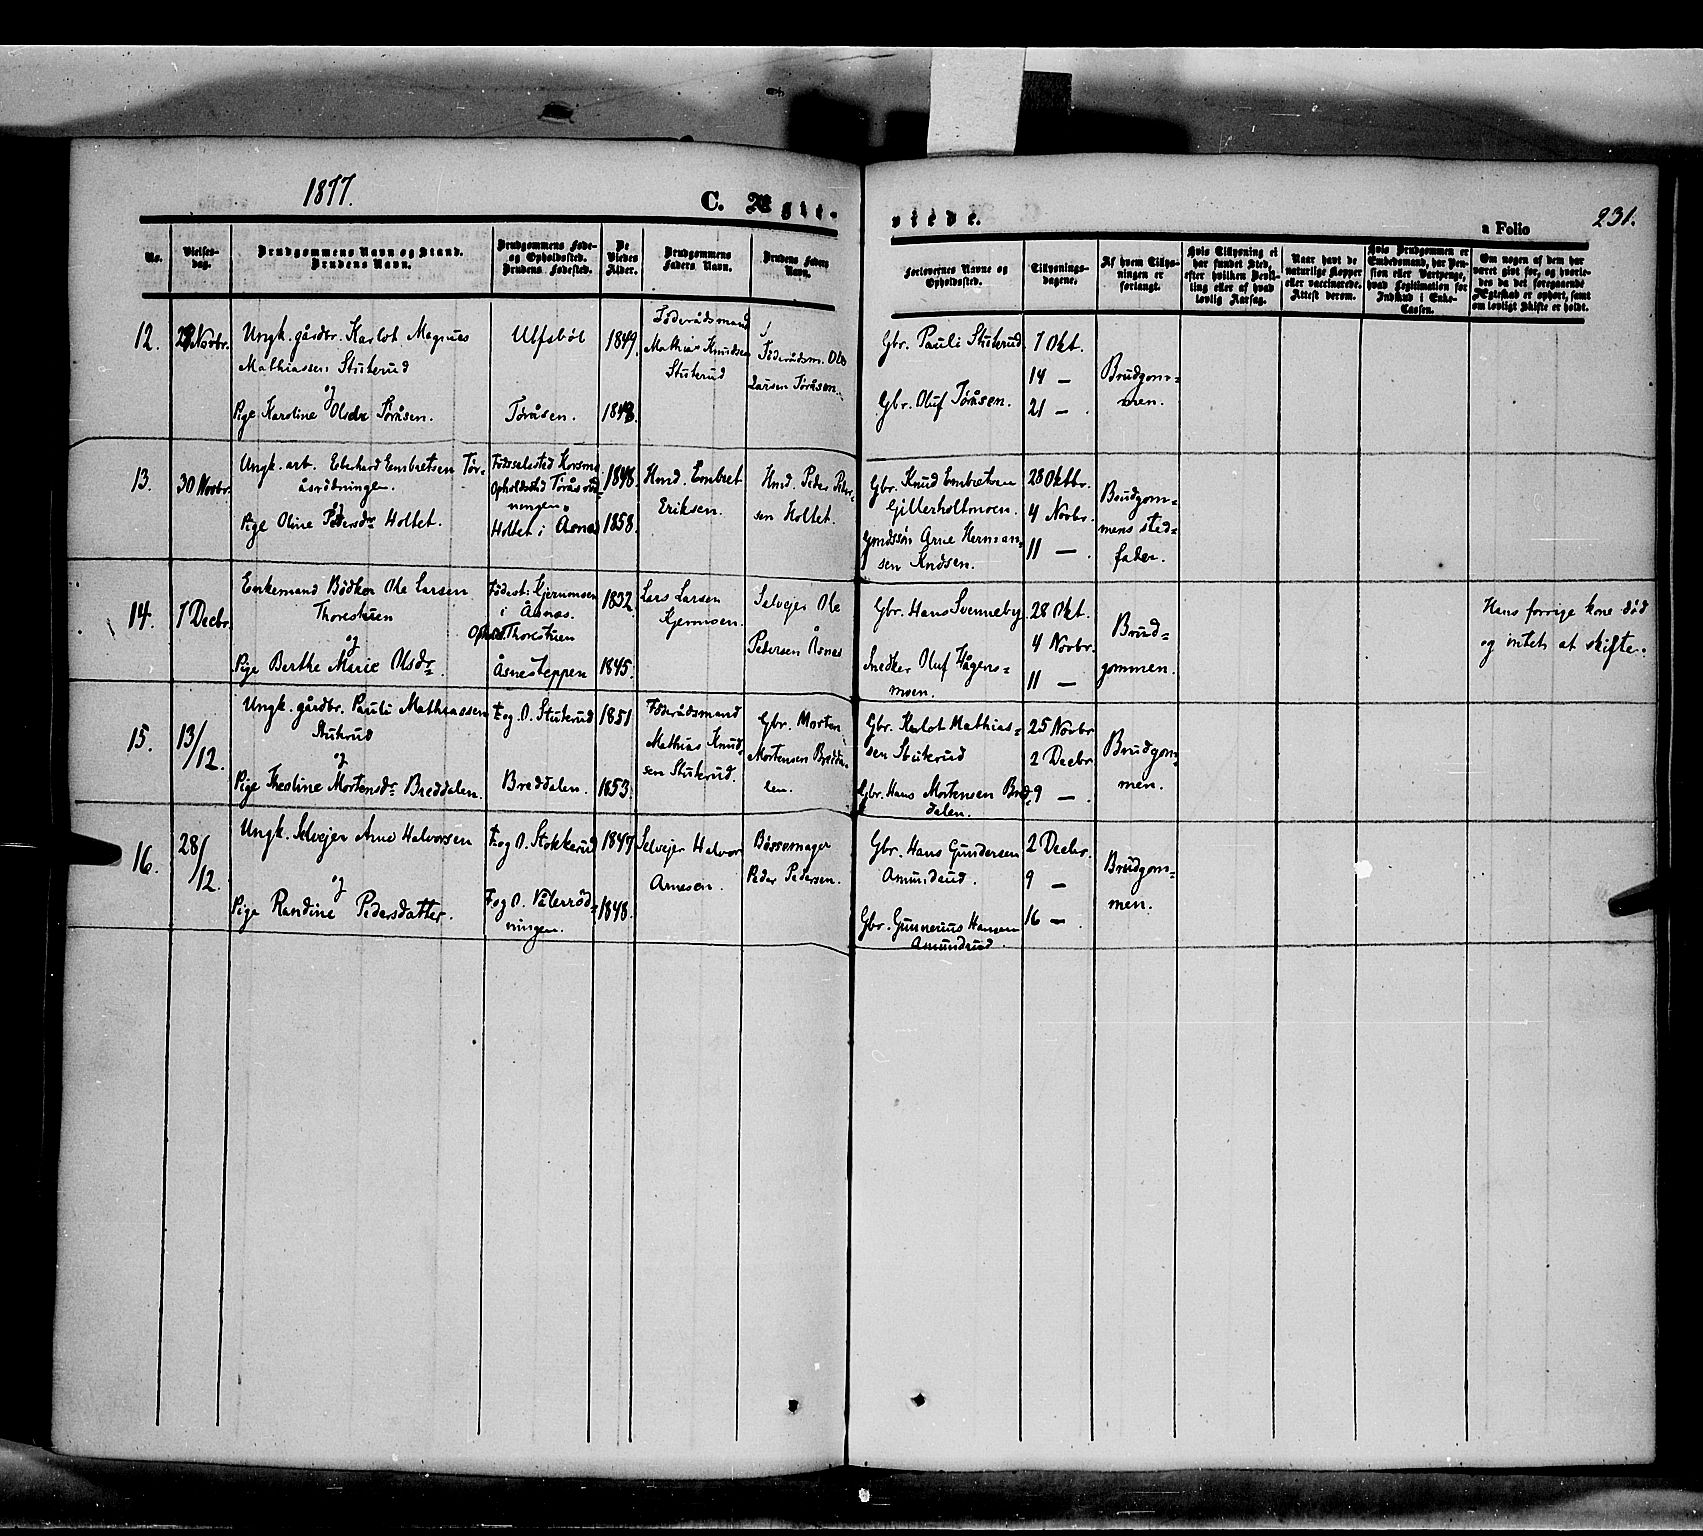 1877.
C. Ægte-
viede.
a Folio
231.
No.
Vielses-
dag.
Brudgommens Navn og Stand.
Brudens Navn.
Brudgommens Føde-
og Opholdssted.
Brudens Fødested.
De
Viedes
Alder.
Brudgommens
Faders Navn.
Brudens Faders
Navn.
Forlovernes Navne og
Opholdssted.
Tillysnings-
dagene.
Af hvem Tillys-
ningen er
forlangt.
Hvis Tillysning ei
har fundet Sted,
efter hvilken Bevil-
ling eller af hvad
lovlig Aarsag.
Naar havt de
naturlige Kopper
eller vaccinerede.
Attest derom.
Hvis Brudgommen er
Embedsmand, har Pen-
sion eller Vartpenge,
hvad Legitimation for
Indskud i Enke-
Cassen.
Om nogen af dem har
været gift før, og hvorle-
des da det foregaaende
Ægteskab er ophørt, samt
om lovligt Skifte er holdt.
12.
Novbr.
Ungk. gårdbr. Karlot Magnus
Mathiassen Stukerud
og
Pige Karoline Olsdr Töråsen.
Ulfsböl
Töråsen.
1849.
Föderådsmand
Mathias Knudsen
Stukerud
Föderådsm. Ole
Larsen Töråsen.
Gbr. Pauli Stukerud
Gbr. Oluf Töråsen.
7 Okt.
14 —
21 —
Brudgom=
men.
13.
30 Novbr.
Ungk. arb. Eberhard Embretsen Tör-
åsrödningen.
Pige Oline Pedersdr Holtet.
Födsselssted Korsmo
Opholdssted Töråsröd=
ningen.
Holtet i Åsnæs
1848.
1858.
Hmd. Embret
Eriksen.
Hmd. Peder Peder-
sen Holtet.
Gbr. Knud Embretsen
Gillerholtmoen.
Gmdssön Arne Herman=
sen Kndsen.
28 Oktbr.
4 Novbr.
11 —
Brudgom=
mens sted=
fader.
14.
7 Decbr.
Enkemand Bödker Ole Larsen
Thorestuen
og
Pige Berthe Marie Olsdr.
Födest. Kjernmoen
i Åsnæs.
Opholdst. Thorestuen
Åsnesteppen
1832
1845.
Lars Larsen
Kjernmoen.
Selvejer Ole
Pedersen Åsnæs
Gbr. Hans Svenneby
Snedker Oluf Hågens=
moen.
28 Okt.
4 Novbr.
11 —
Brud=
gommen.
Hans forrige kone död
og intet at skifte.
15.
13/12.
Ungk. gårdbr. Pauli Mathiassen
Stukrud
og
Pige Thestine Mortensdr Breddalen.
F. og O. Stukerud
Breddalen.
1851
1853.
Föderådsmand
Mathias Knud-
sen Stukerud.
Gbr. Morten
Mortensen Bredda-
len.
Gbr. Karlot Mathias=
sen Stukerud
Gbr. Hans Mortensen Bred-
dalen.
25 Novbr
2 Decbr
9 —
Brudgom-
men.
16.
28/12.
Ungk. Selvejer Arne Halvorsen
og
Pige Randine Pedersdatter.
F. og O. Stokkerud
F. og O. Vålerröd=
ningen.
1847
1848.
Selvejer Halvor
Arnesen.
Bössemager
Peder Pedersen.
Gbr. Hans Gundersen
Amundrud.
Gbr. Gunnerius Hansen
Amundrud.
2 Decbr.
9 —
16 —
Brudgom=
men.